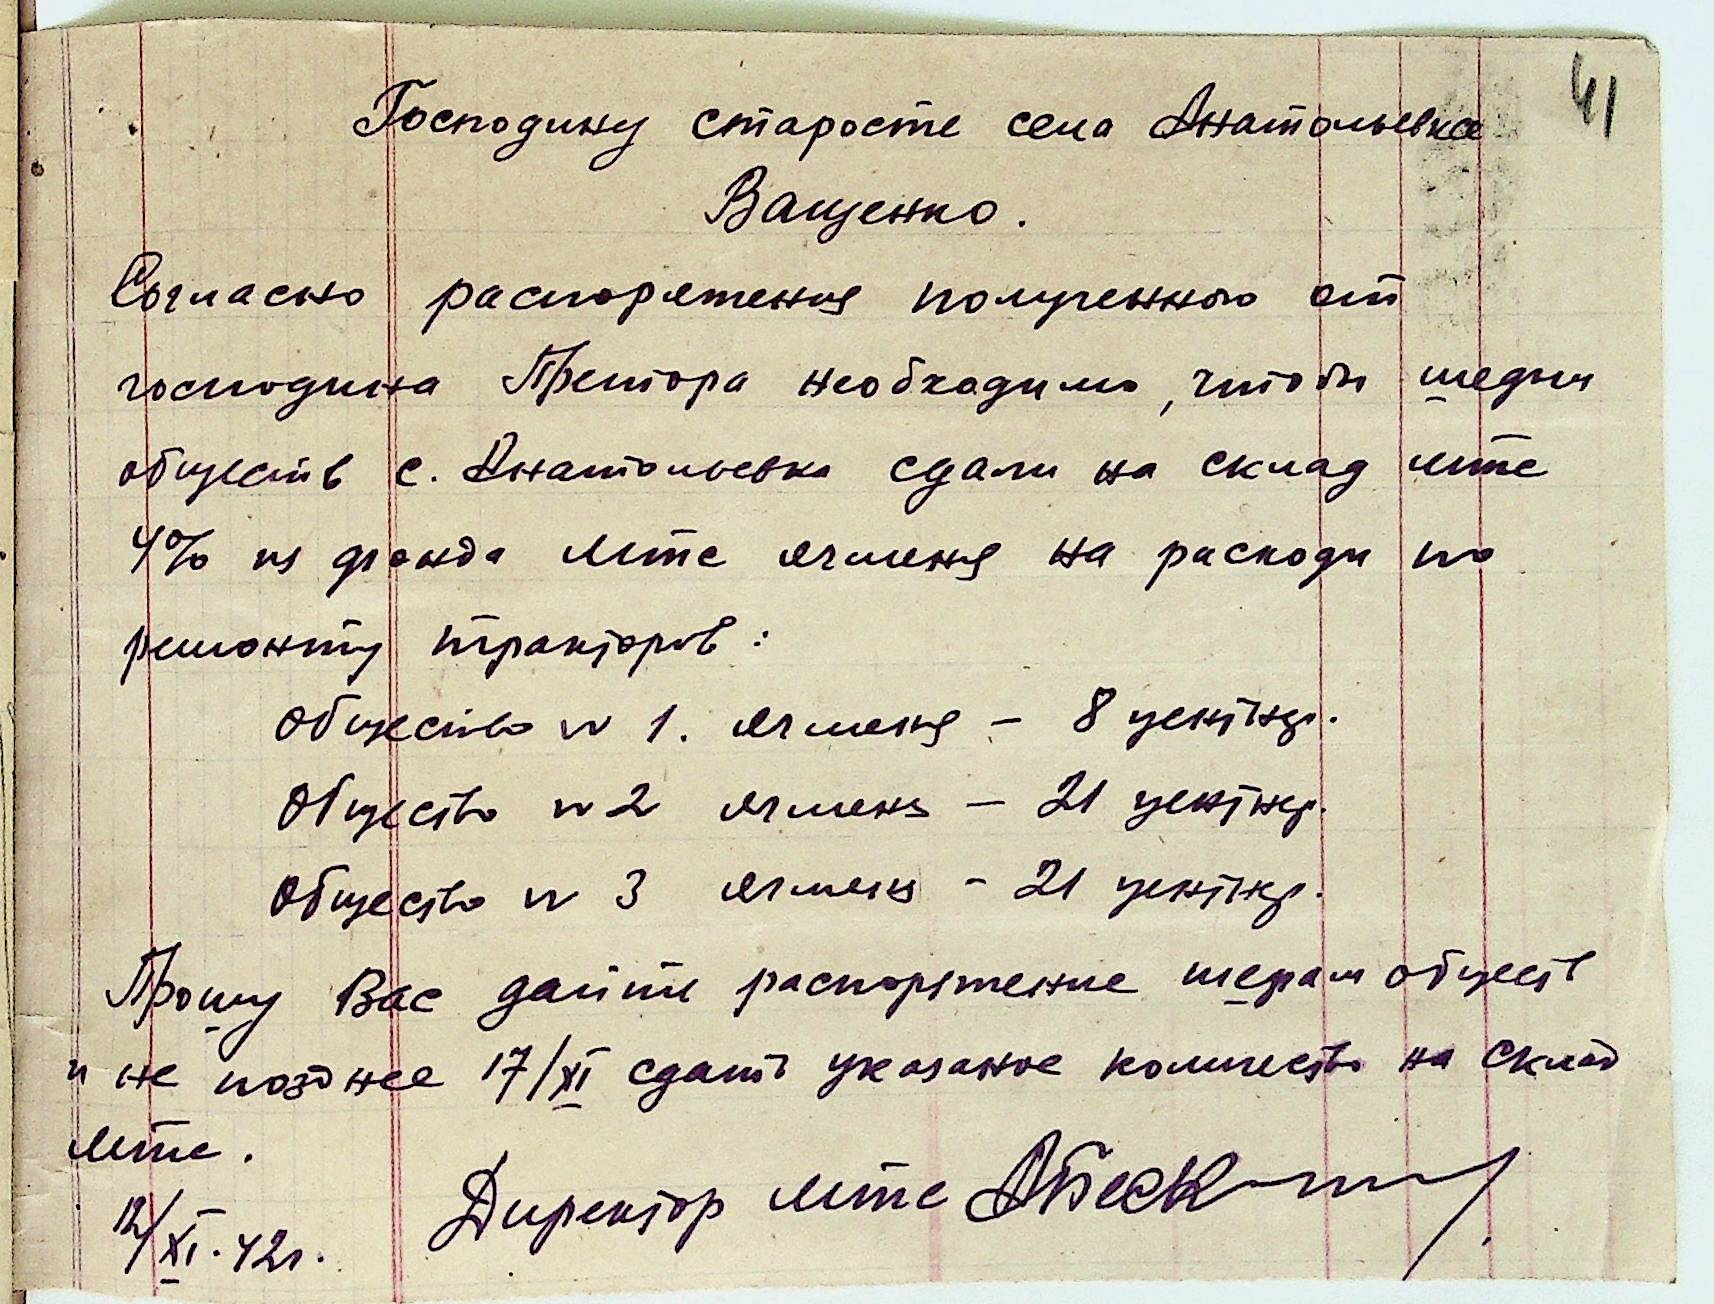 41
Господину старосте села Анатольевка
Ващенко.
Согласно распоряжения полученного от
господина Претора необходимо, чтобы шефы
обществ с. Анатольевка сдали на склад мтс
4% из фонда мтс ячменя на расходы по
ремонту тракторов:
Общество № 1. ячменя – 8 центнер.
Общество № 2 ячменя – 21 центнер.
Общество № 3 ячменя – 21 центнер.
Прошу Вас дайте распоряжение шефам обществ
и не позднее 17/XI сдать указаное количество на склад
мтс.
Директор мтс
12/XI.42г.